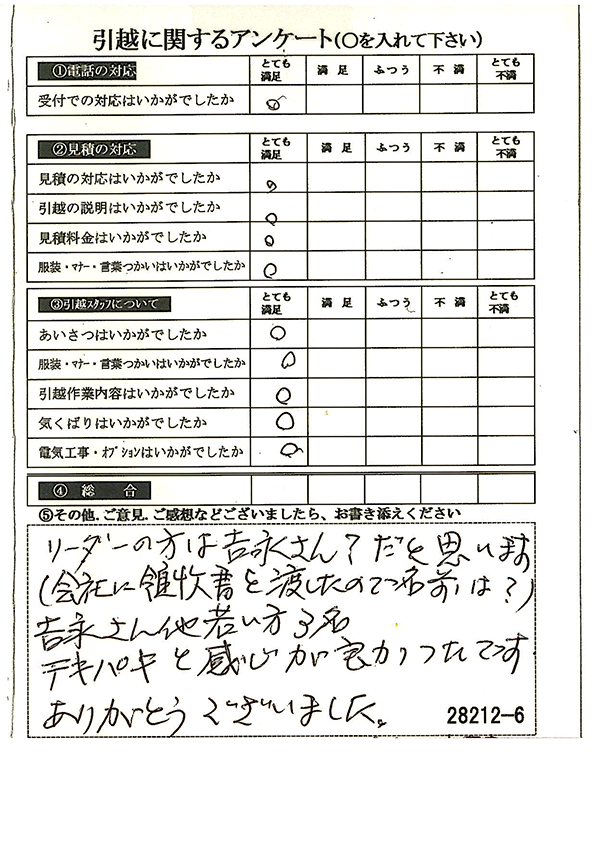 引越に関するアンケート(○を入れて下さい)
①電話の対応 とても満足 満足 ふつう 不満 とても不満
受付での対応はいかがでしたか ○
②見積の対応 とても満足 満足 ふつう 不満 とても不満
見積の対応はいかがでしたか ○
引越の説明はいかがでしたか ○
見積料金はいかがでしたか ○
服装・マナー・言葉つかいはいかがでしたか ○
③引越スタッフについて とても満足 満足 ふつう 不満 とても不満
あいさつはいかがでしたか ○
服装・マナー・言葉つかいはいかがでしたか ○
引越作業内容はいかがでしたか ○
気くばりはいかがでしたか ○
電気工事・オプションはいかがでしたか ○
④総合
⑤その他.ご意見.ご感想などございましたら、お書き添えください
リーダーの方は吉永さん?だと思います
(会社に領収書を渡したので名前は?)
吉永さん他若い方3名
テキパキと感じが良かったです
ありがとうございました。
28212-6